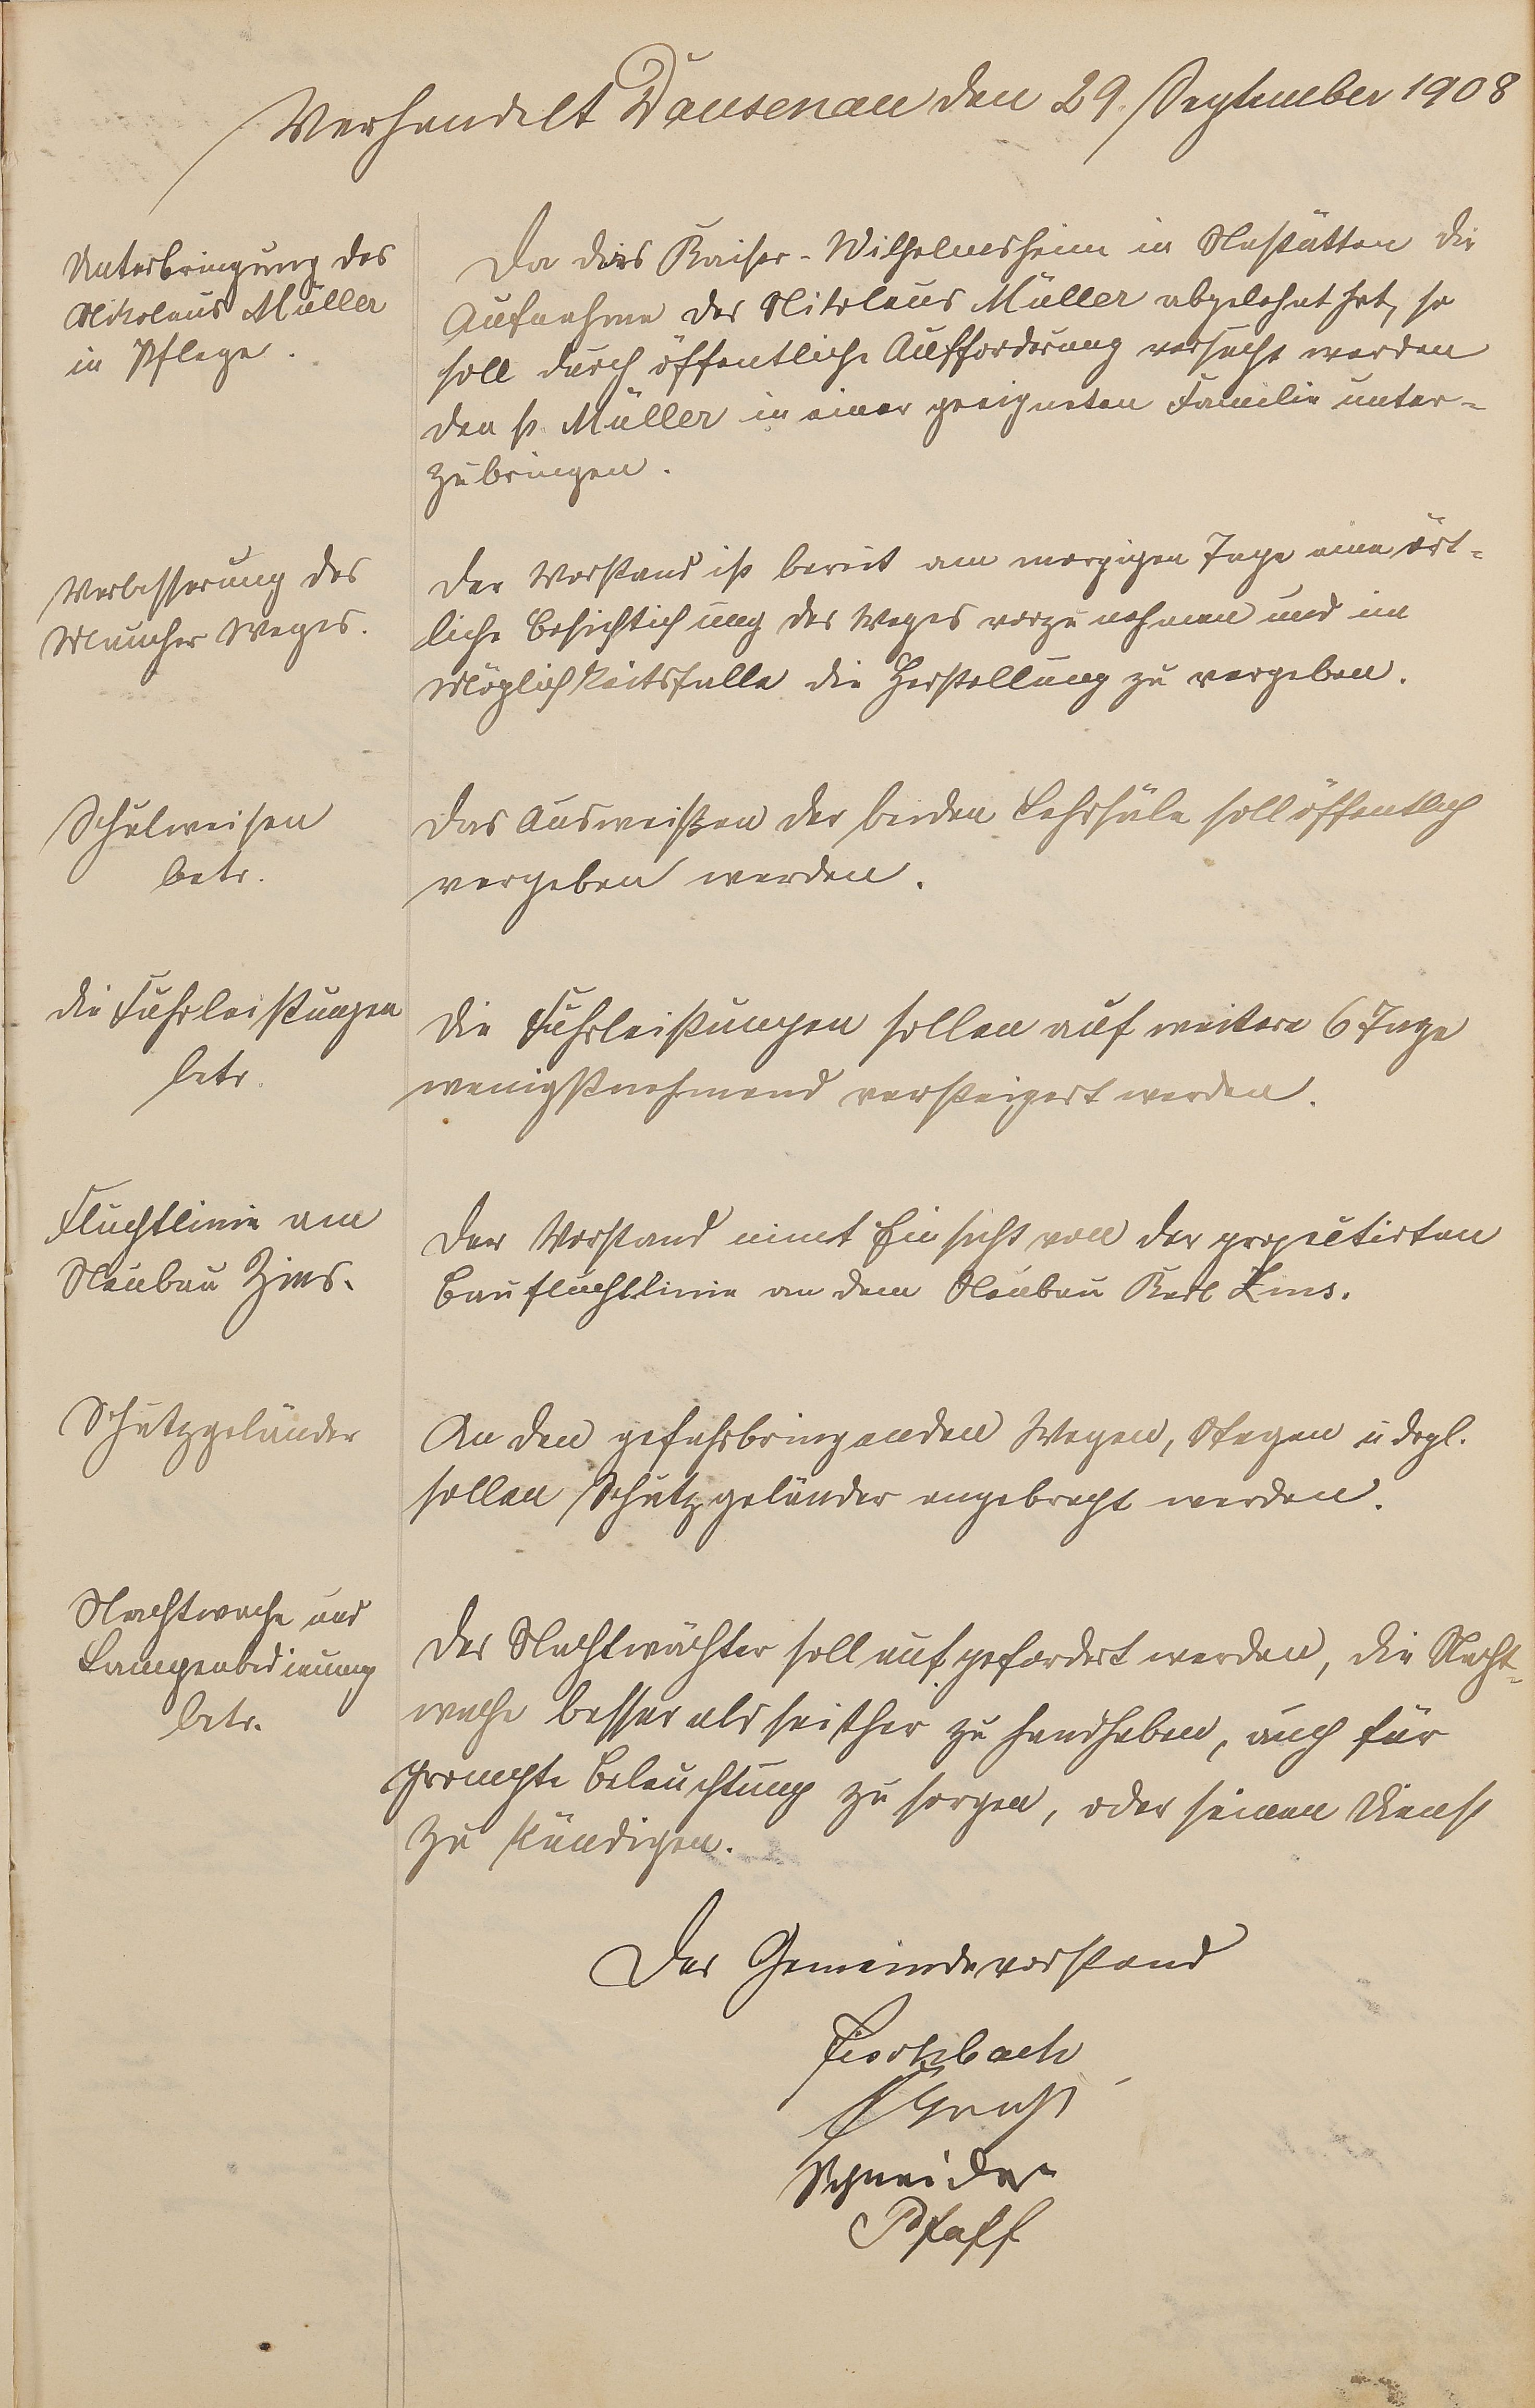 Verhandelt Dausenau den 29. September 1908
Unterbringung des
Nikolaus Müller
in Pflege.
Da das Kaiser-Wilhelmsheim in Nastätten die
Aufnahme des Nikolaus Müller abgelehnt hat, so
soll durch öffentliche Aufforderung versucht werden
den p. Müller in einer geeigneten Familie unter-
zubringen.
Verbesserung des
Weges.
Der Vorstand ist bereit am morgigen Tage eine ört-
liche Besichtichung des Weges vorzunehmen und im
Möglichkeitsfalle die Herstellung zu vergeben.
Schulweisen
betr.
Das Ausweißen der beiden Lehrsäle soll öffentlich
vergeben werden.
die Fuhrleistungen
betr.
Die Fuhrleistungen sollen auf weitere 6 Tage
wenigstnehmend versteigert werden.
Fluchtlinie am
Neubau Zins.
Der Vorstand nimt Einsicht von der projectirten
Baufluchtlinie an dem Neubau Karl Zins.
Schutzgeländer
An den gefahrbringenden Wegen, Stegen u drgl.
sollen Schutzgeländer angebracht werden.
Nachtwache und
Lampenbedienung
betr.
Der Nachtwächter soll aufgefordert werden, die Nacht-
wache besser als seither zu handhaben, auch für
prompte Beleuchtung zu sorgen, oder seinen Dienst
zu kündigen.
Der Gemeindevorstand
Schneider
Pfaff